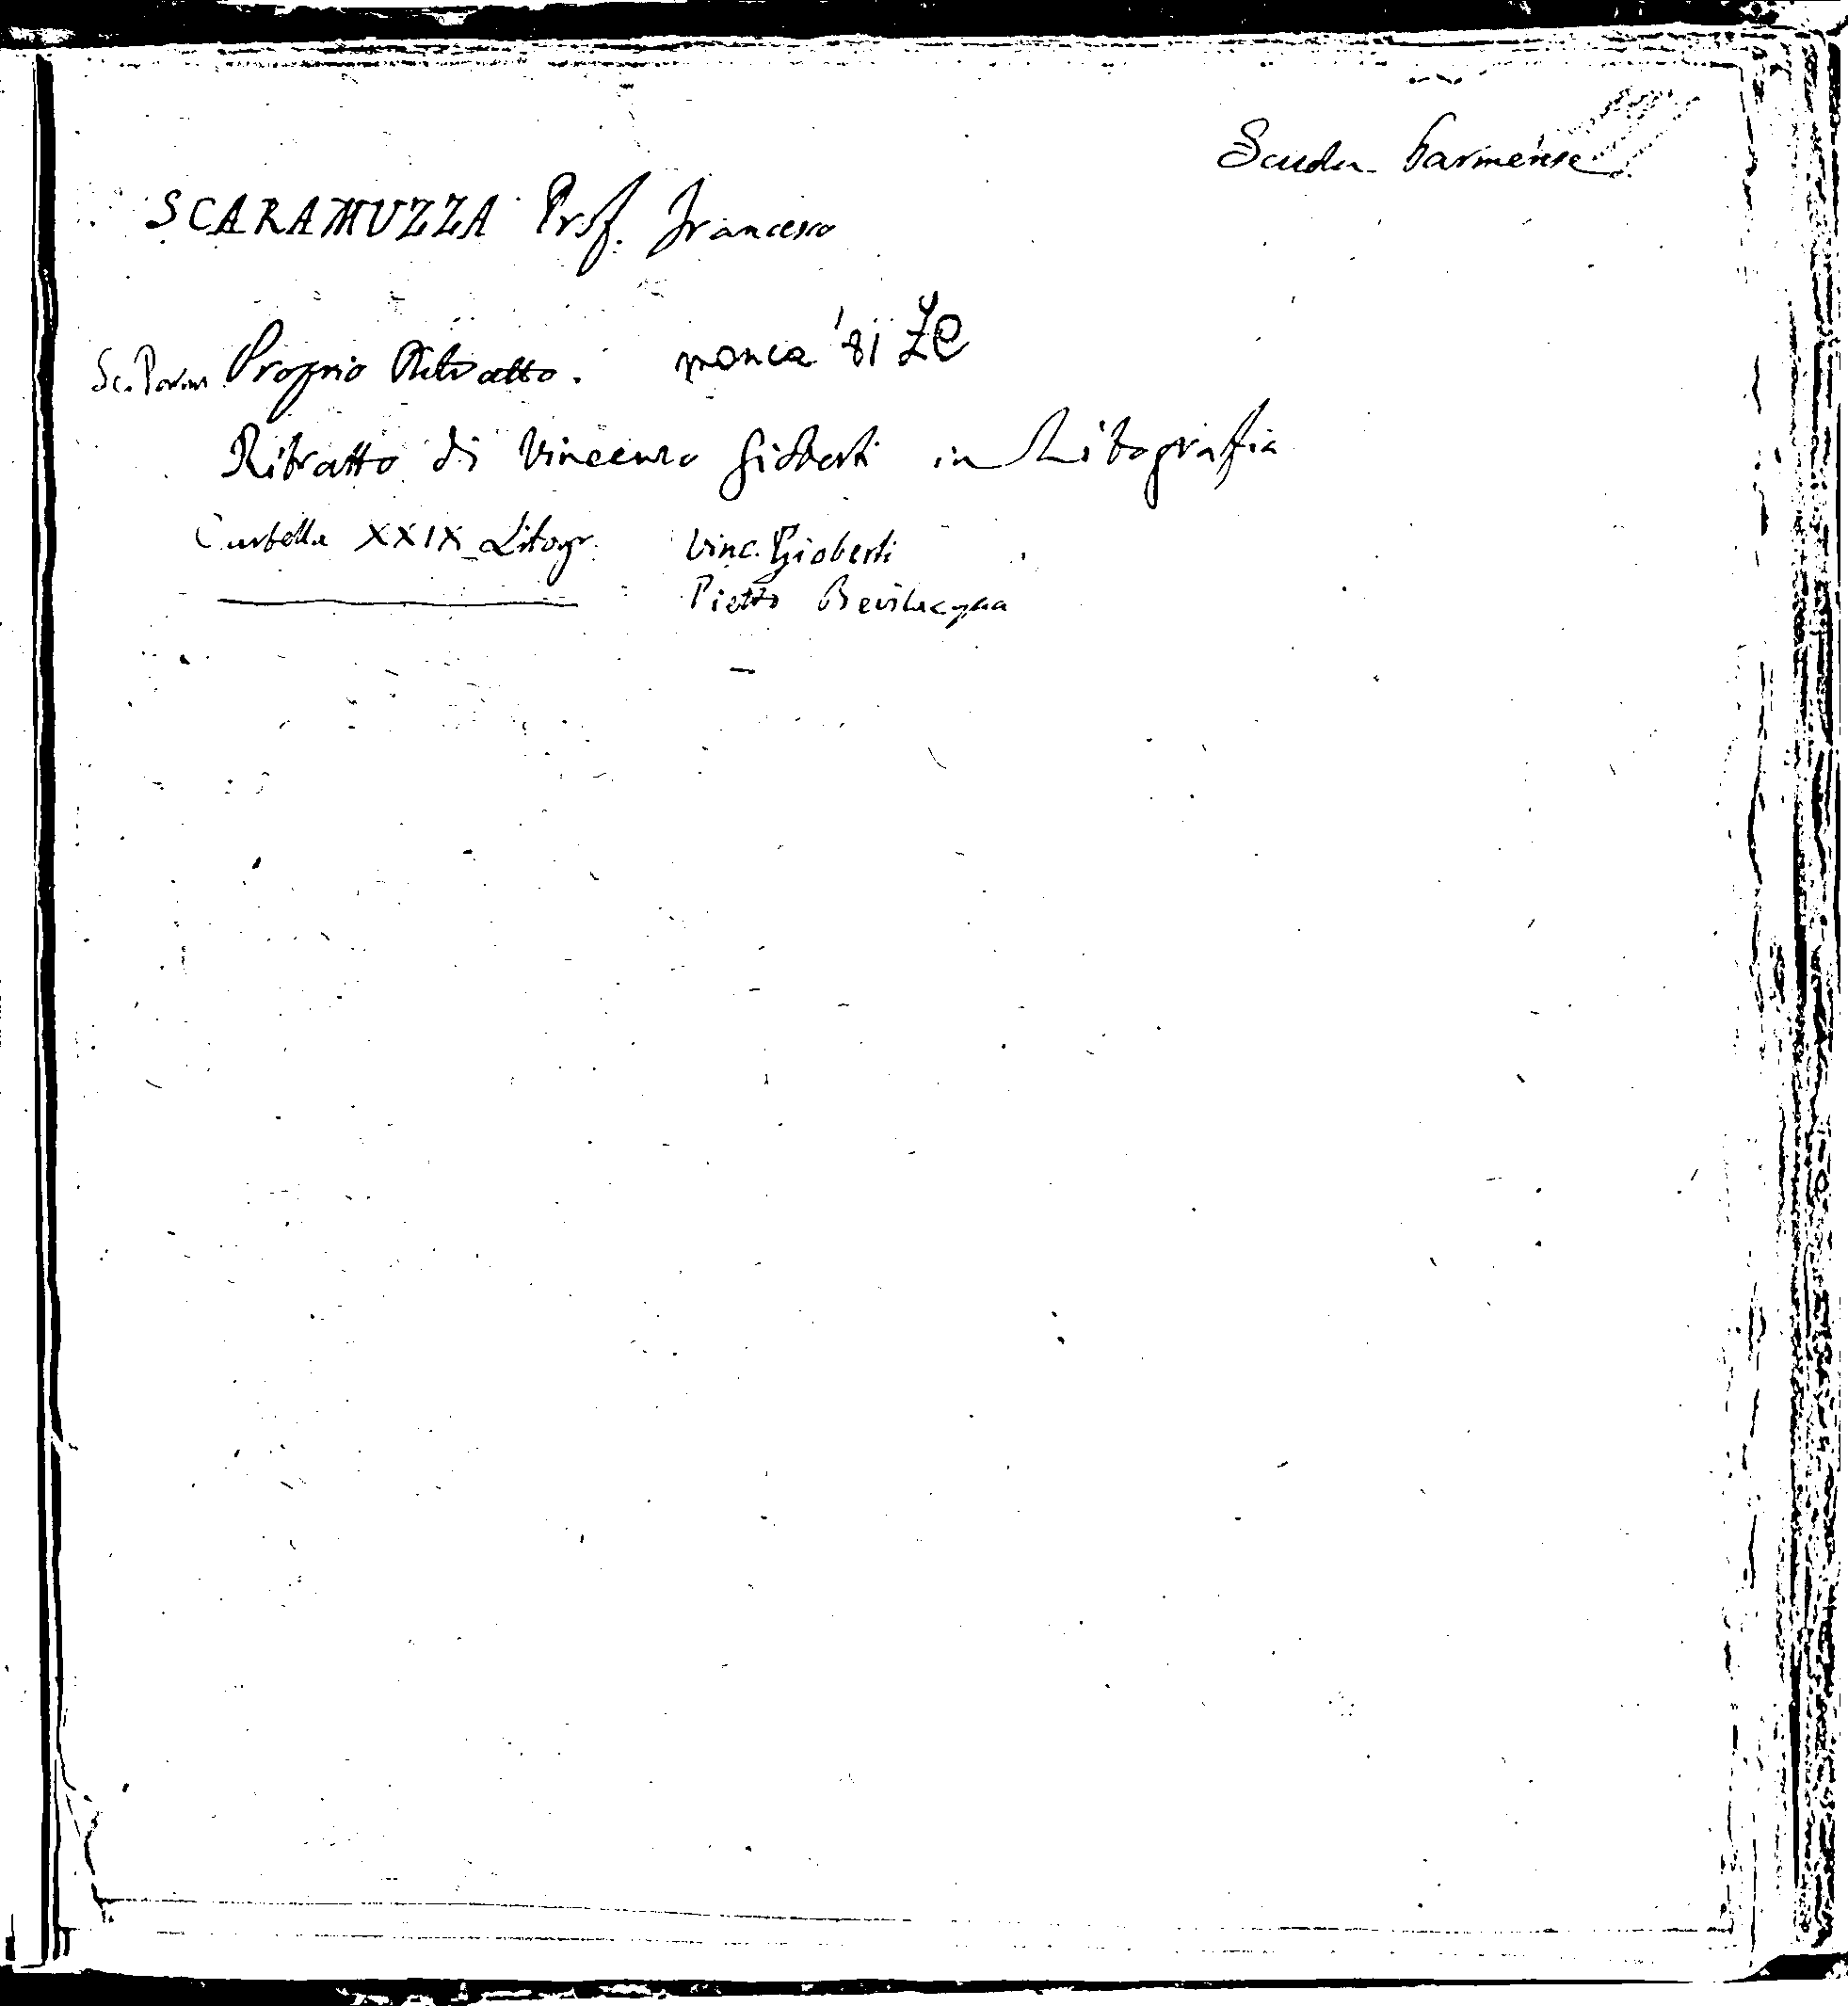 Scuola parmense
SCARAMUZZA Prof. Francesco
Sc. Parm. Proprio Ritratto. manca '81
Ritratto di Vincenzo Gioberti in Litografia
Cartella XXIX Litogr. Vinc. Gioberti
Pietro Bevilacqua